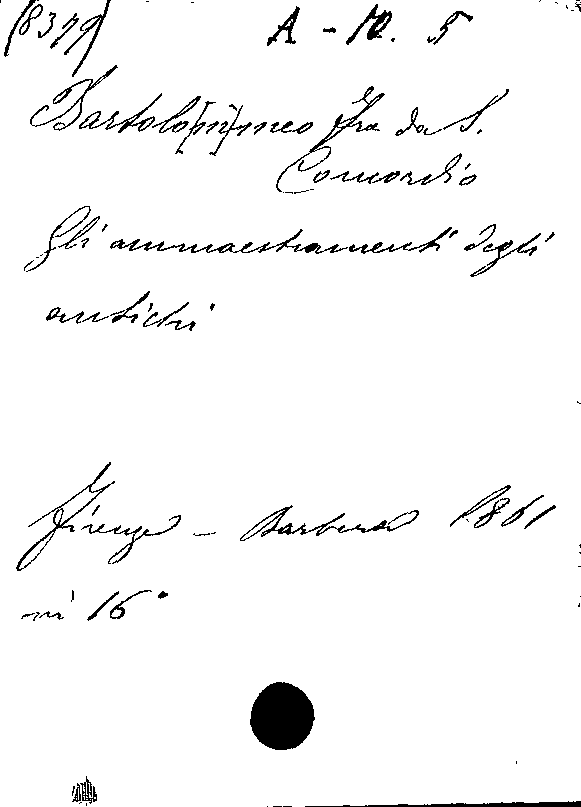 (8379) A - 10. 5
Bartolo[m]meo Fra da S.
Concordio
Gli ammaestramenti degli
antichi
Firenze - Barbera 1861
in 16°